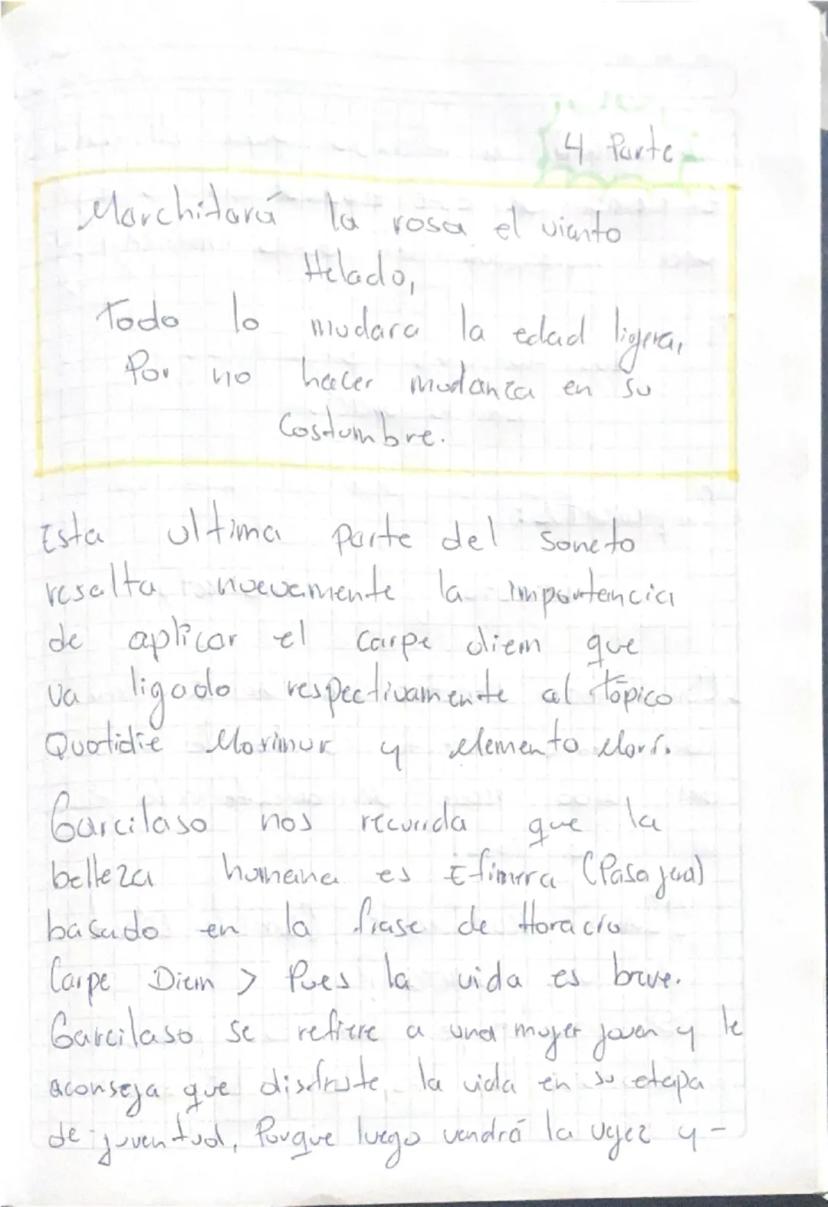 4 Parte
Marchitará la rosa el viento
Helado,
Todo lo mudara la edad ligera,
Por no hacer mudanza en su
Costumbre.
Esta ultima parte del soneto
resalta nuevamente la importancia
de aplicar el carpe diem que
va ligado respectivamente al tópico
Quotidie Morimur y Memento Mori.
Garcilaso nos recuerda que la
belleza humana es Efimera (Pasajera)
basado en la frase de Horacio
Carpe Diem > Pues la vida es breve.
Garcilaso se refiere a una mujer joven y le
aconseja que disfrute la vida en su etapa
de juventud, Porque luego vendrá la vejez y -